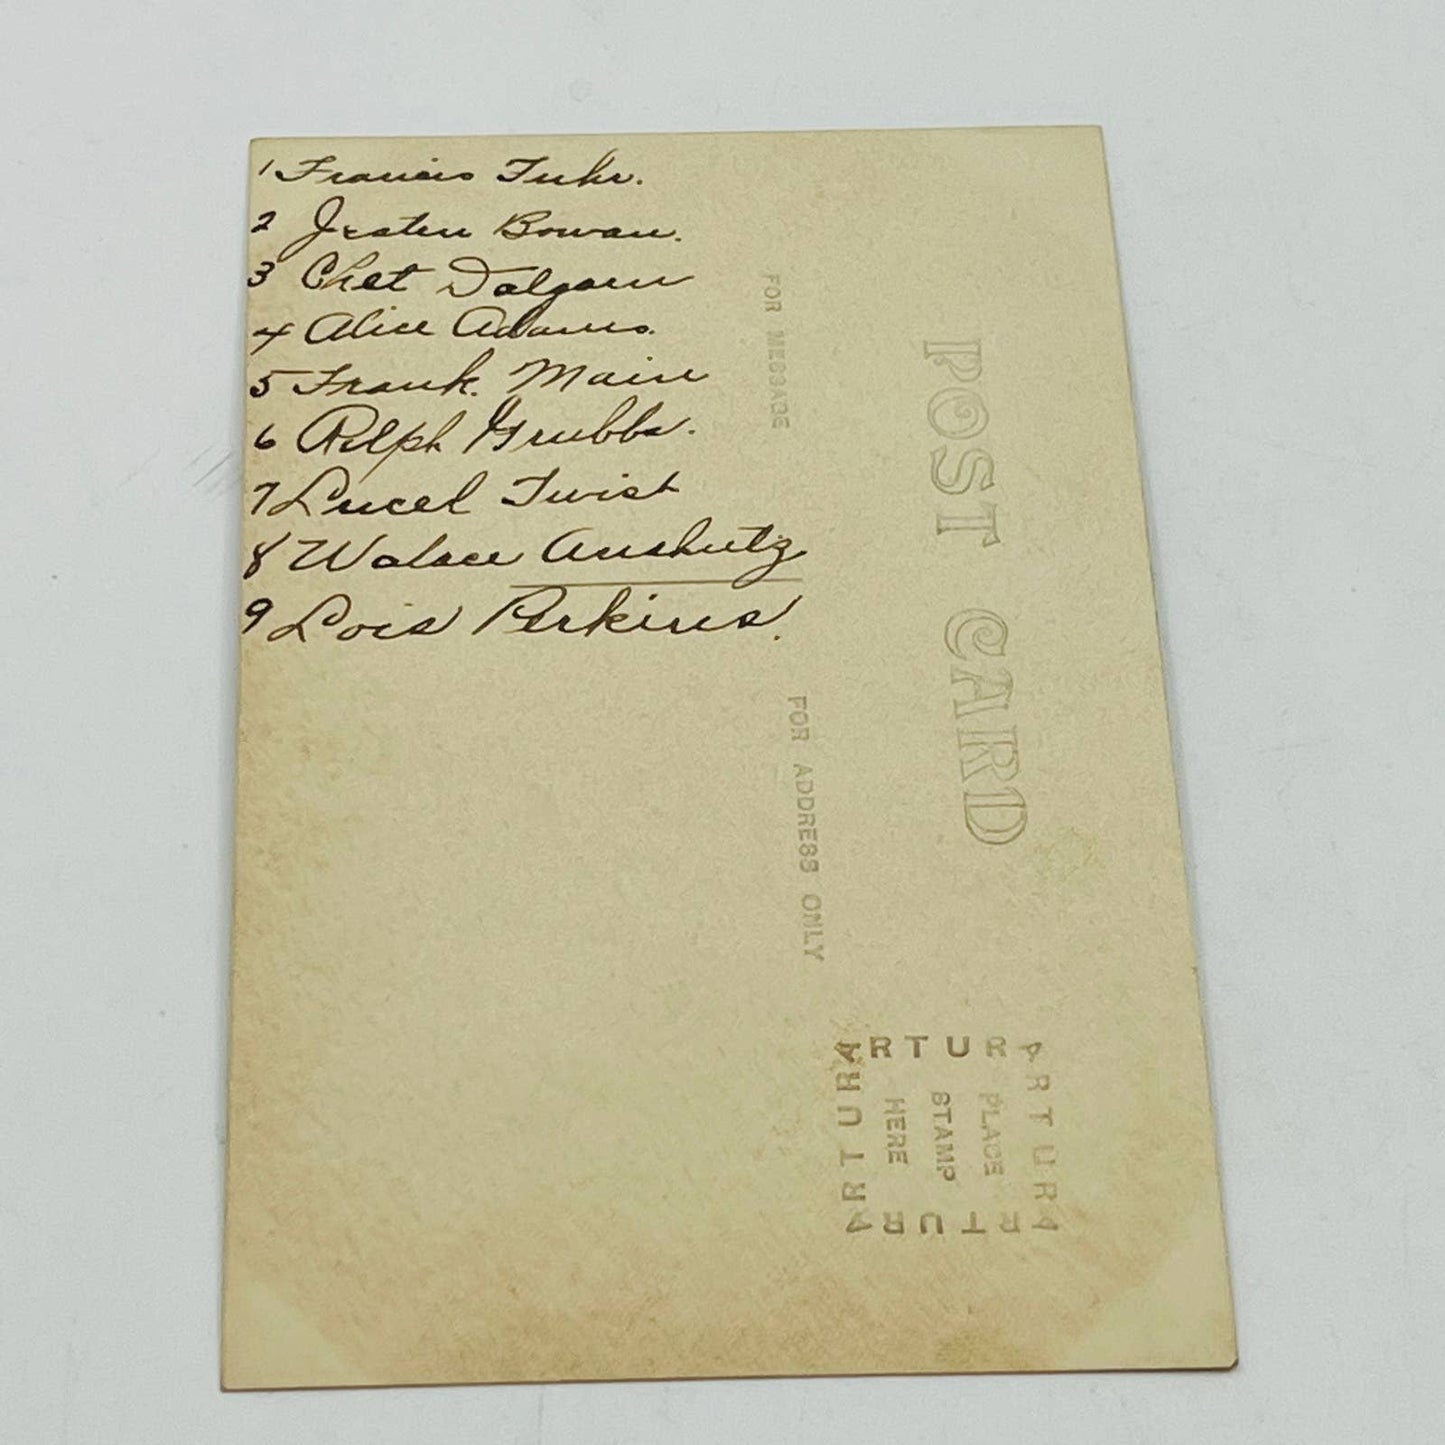 1 Francis Fuhr.
2 Bowan.
3 Chet Dalgarn
4 Alice Adams.
5 Frank. Main
6 Ralph Grubbs.
7 Lucel Twist
8 Walace Anshutz
9 Lois Perkins.
POST CARD
FOR MESSAGE
FOR ADDRESS ONLY
ARTURA
ARTURA
ARTURA
ARTURA
PLACE
STAMP
HERE